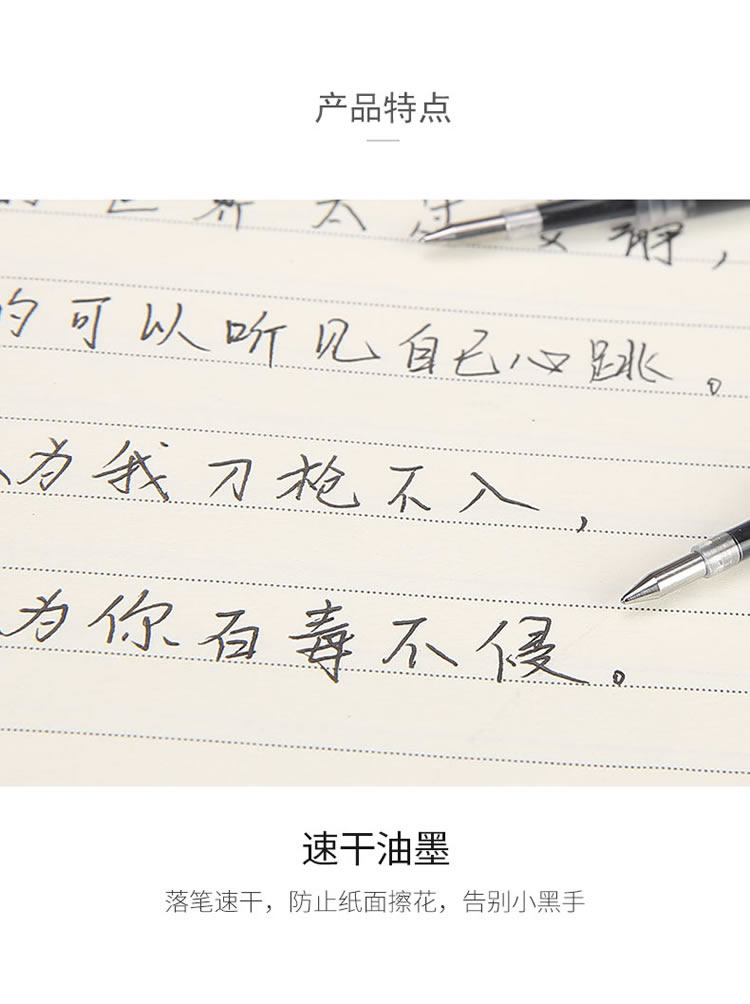 产品特点
世界太安静，
的可以听见自己心跳。
以为我刀枪不入，
为你百毒不侵。
速干油墨
落笔速干，防止纸面擦花，告别小黑手